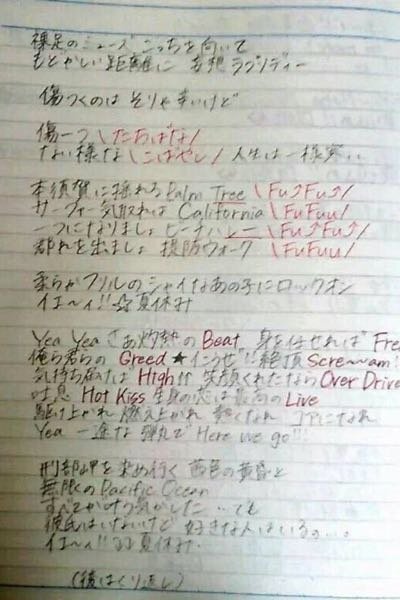 裸足のミューズ こっちを向いて
もどかしい距離感に 妄想ラプソディー
傷つくのは そりゃ辛いけど
傷一つ \たちばな/
ない様な \こばやし/ 人生は一様寒い
本須賀に揺れる Palm Tree \Fu⤴Fu⤴/
サーファー気取れば California \FuFuu/
一つになりましょ ビーチバレー \Fu⤴Fu⤴/
群れを出ましょ 堤防ウォーク \FuFuu/
柔らかフリルの シャイなあの子にロックオン
イエ〜ィ!! ☆夏休み
Yea Yea さあ灼熱の Beat 身を任せれば Fre
俺ら君らの Greed ★ 絶頂 Scre〜am!
気持ち届けば High!! 笑顔くれたなら Over Drive
吐息 Hot Kiss 生身の恋は最高の Live
駆け上がれ 燃え上がれ 熱くなれ コアになれ
Yea 一途な弾丸で Here we go!!
刑部岬を染め行く 茜色の黄昏と
無限の Pacific Ocean
すべてかけ 気がした…でも
彼氏はいないけど 好きな人はいるの…。
イエ〜ィ!! ☆夏休み
(後はくり返し)